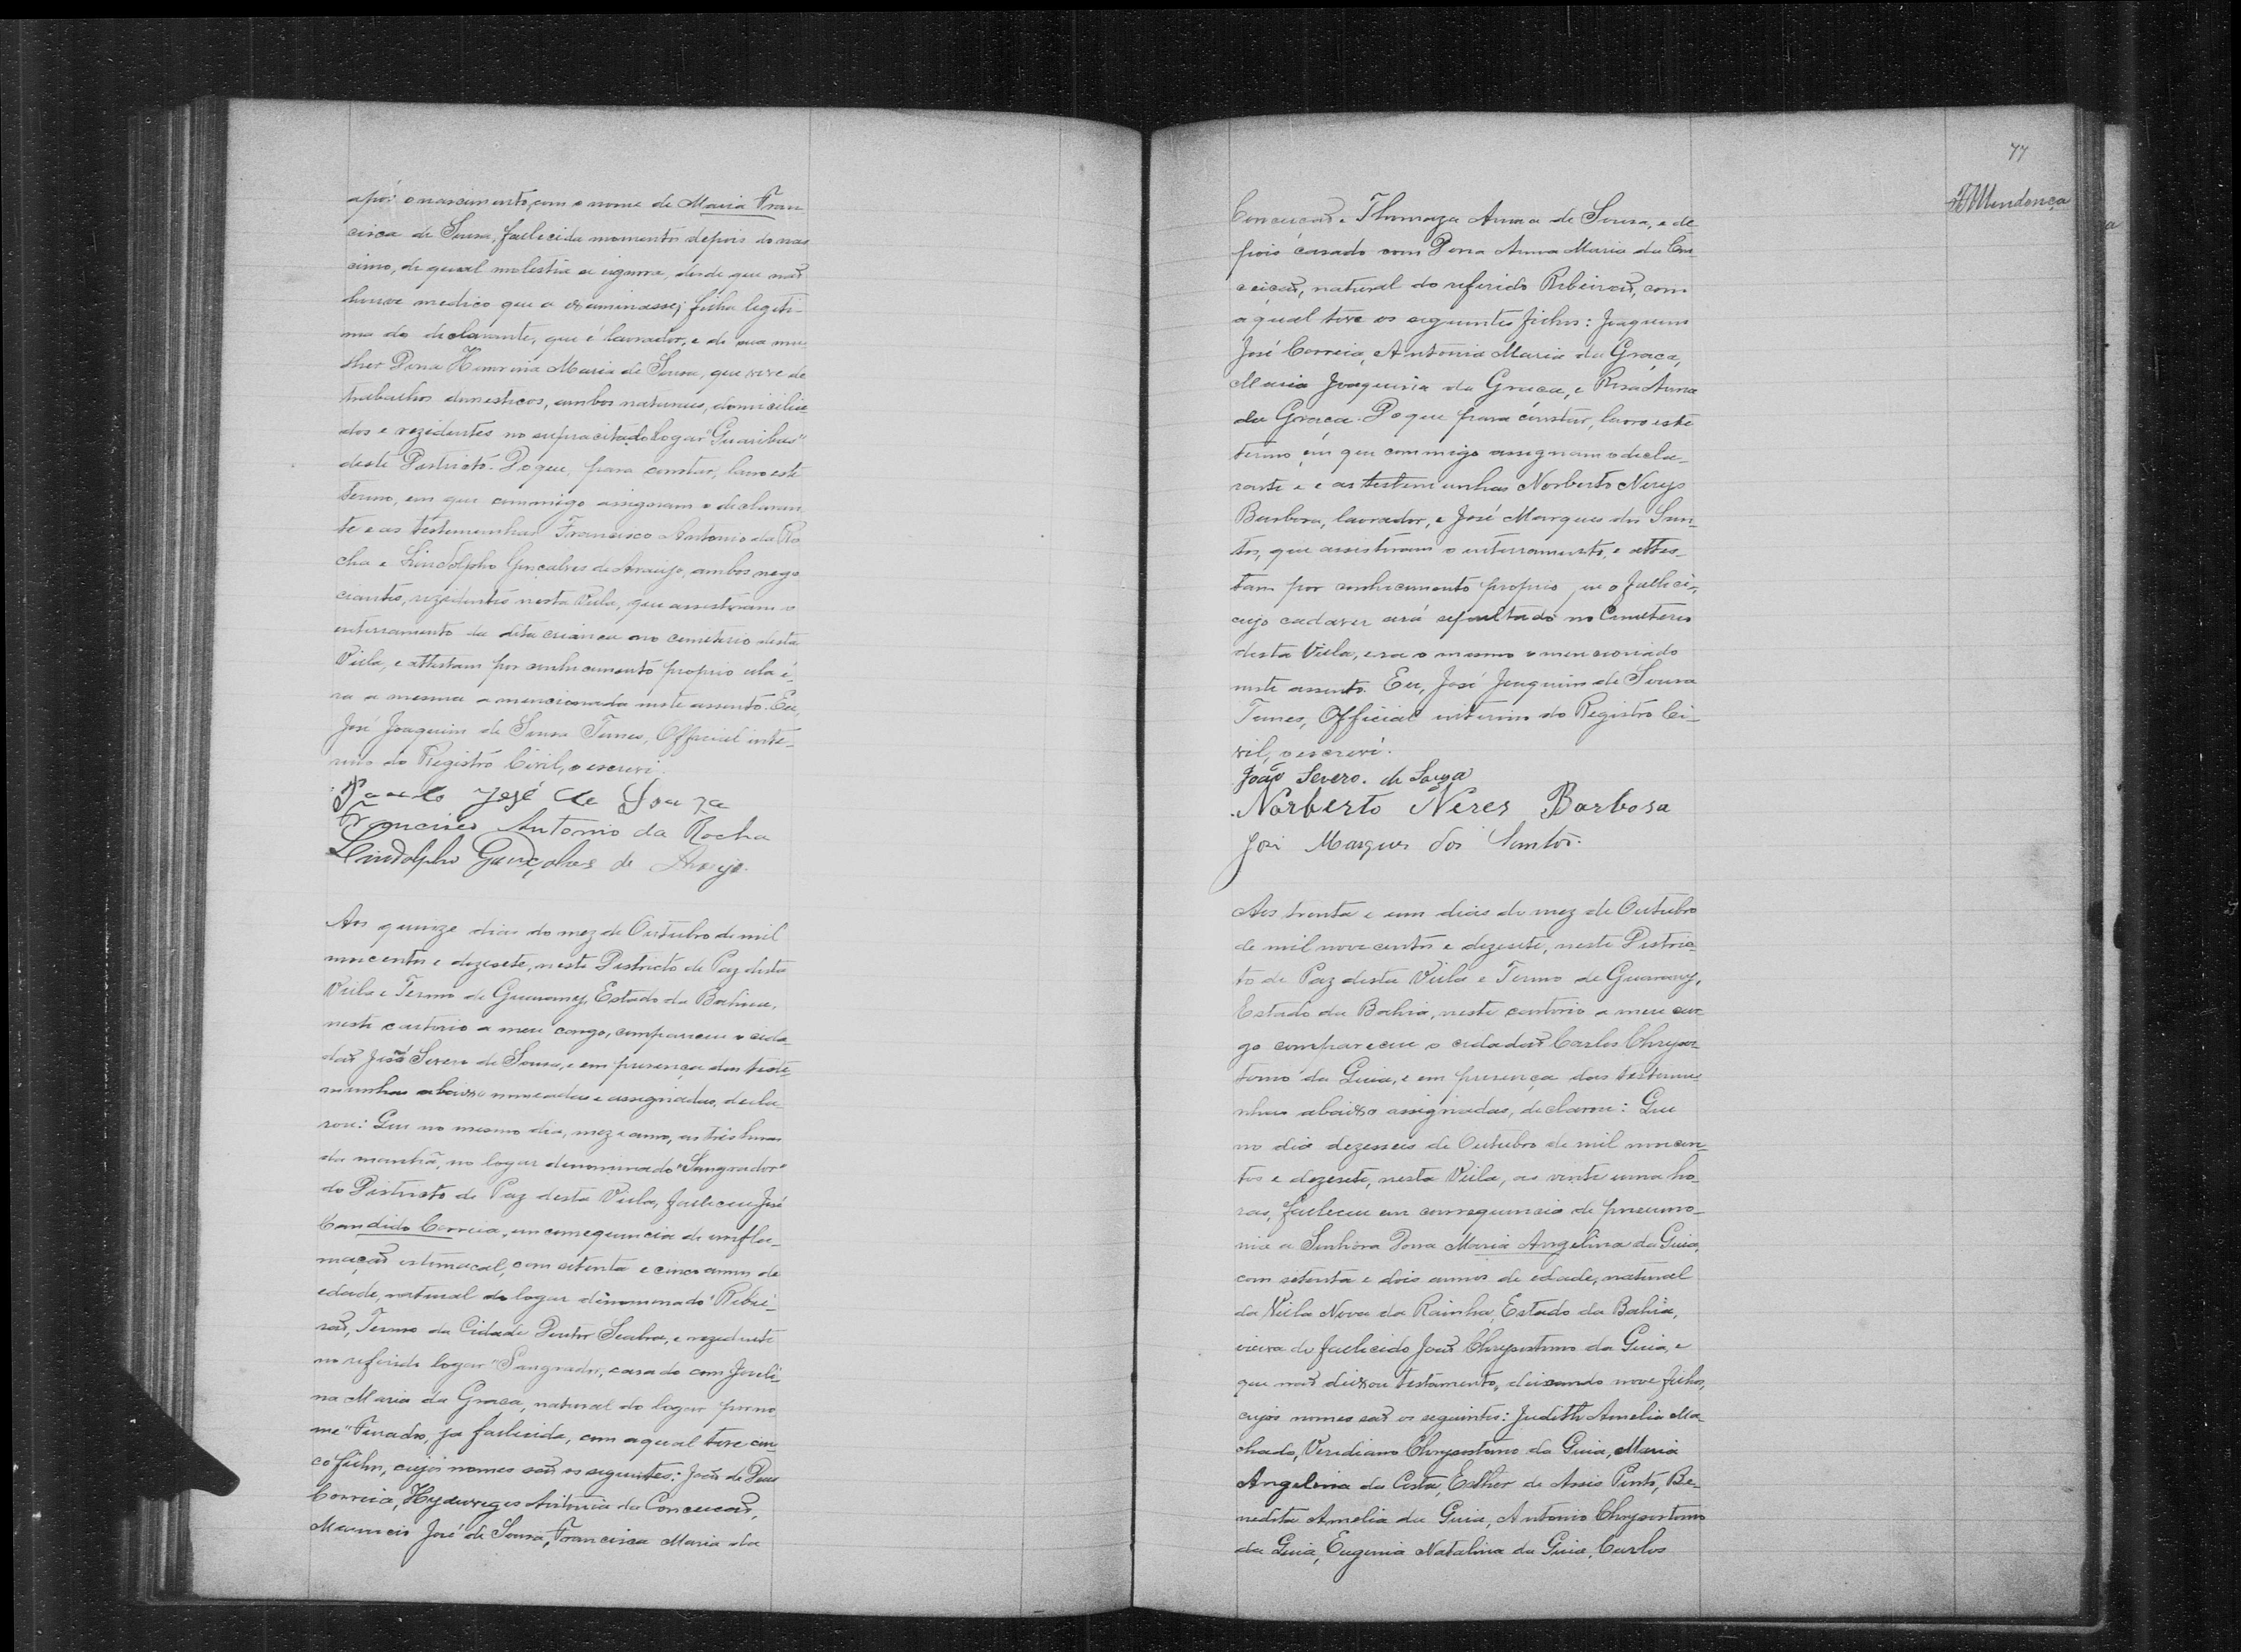 após o nascimento, com o nome de Maria Fran
cisca de Sousa, fallecida momentos depois do nas
cimo, de qual molestia se ignora, desde que não
houve medico que a examinasse; filha legiti-
ma do declarante, que é lavrador, e de sua mu-
lher Dona Maria de Sousa, que vive de
trabalhos domesticos, ambos naturaes, domicilia-
dos e rezidentes no supracitado logar "Guaribas"
deste Districto. Do que, para constar, lavro este
termo, em que commigo assignam o declaran
te e as testemunhas Francisco Antonio da Ro
cha e Lindolpho Gonçalves de Araujo, ambos nego
ciantes, rezidentes nesta Villa, que assistiram o
enterramento da dita criança no cemeterio desta
Villa, e attestam por conhecimento proprio ella é-
ra a mesma a mencionada neste assento. Eu,
José Joaquim de Sousa Tunes, Official inte-
rino do Registro Civil, o escrevi.
Paulo José de Souza
Francisco Antonio da Rocha
Lindolpho Gonçalves de Araujo.
Aos quinze dias do mez de Outubro de mil
novecentos e dezesete, neste Districto de Paz desta
Villa e Termo de Guarany, Estado da Bahia,
neste cartorio a meu cargo, compareceu o cida-
dão João Severo de Sousa, e em presença das teste-
munhas abaixo nomeadas e assignadas, decla-
rou: Que no mesmo dia, mez e anno, as tres horas
da manhã, no logar denominado "Sangrador"
do Districto de Paz desta Villa, falleceu José
Candido Correia, em consequencia de infla-
mação estomacal, com setenta e cinco annos de
edade, natural do logar denominado "Ribei-
rão, Termo da Cidade Doutor Seabra, e rezidente
no referido logar "Sangrador, casado com Joveli-
na Maria da Graça, natural do logar por no
me, já fallecida, com a qual teve cin-
co filhos, cujos nomes são os seguintes: João de Deus
Correia, Hyduvirges Antonia da Conceicão,
José de Sousa, Francisca Maria da
77
Mendonça
Conceicão e Thomaza Anna de Sousa, e de
pois casado com Dona Anna Maria da Con
ceicão, natural do referido Ribeirão, com
a qual teve os seguintes filhos: Joaquim
José Correia, Antonia Maria da Graça,
Maria Joaquina da Graca, e Rosa Anna
da Graca. Do que para constar, lavro este
termo em que commigo assignam o decla-
rante e e as testemunhas Norberto Nerys
Barbosa, lavrador, e José Marques dos San-
tos, que assistiram o enterramento, e attes-
tam por conhecimento proprio que o falleci-,
cujo cadaver será sepultado no Cemeterio
desta Villa, era o mesmo o mencionado
neste assento. Eu, José Joaquim de Sousa
Tunes, Official interino do Registro Ci-
vil, o escrevi.
João Severo. de Souza
Norberto Neres Barbosa
José Marques dos Santos.
Aos trinta e um dias do mez de Outubro
de mil novecentos e dezesete, neste Distric-
to de Paz desta Villa e Termo de Guarany,
Estado da Bahia, neste cartorio a meu car
go compareceu o cidadão Carlos Chrysos
tomo da Guia, e em presença das testemu-
nhas abaixo assignadas, declarou: Que
no dia dezesseis de Outubro de mil novecen-
tos e dezesete, nesta Villa, as vinte uma ho-
ras, falleceu em consequencia de pneumo-
nia a Senhora Dona Maria Angelina da Guia,
com setenta e dois annos de edade, natural
da Villa Nova da Rainha, Estado da Bahia,
viuva do fallecido João Chrysostomo da Guia, e
que não deixou testamento, deixando nove filhos,
cujos nomes são os seguintes: Judith Amelia Ma-
chado, Viridiano Chrysostomo da Guia, Maria
Angelina da Costa, Esther de Assis Pinto, Be-
nedita Amelia da Guia, Antonio Chrysostomo
da Guia, Eugenia Natalina da Guia, Carlos